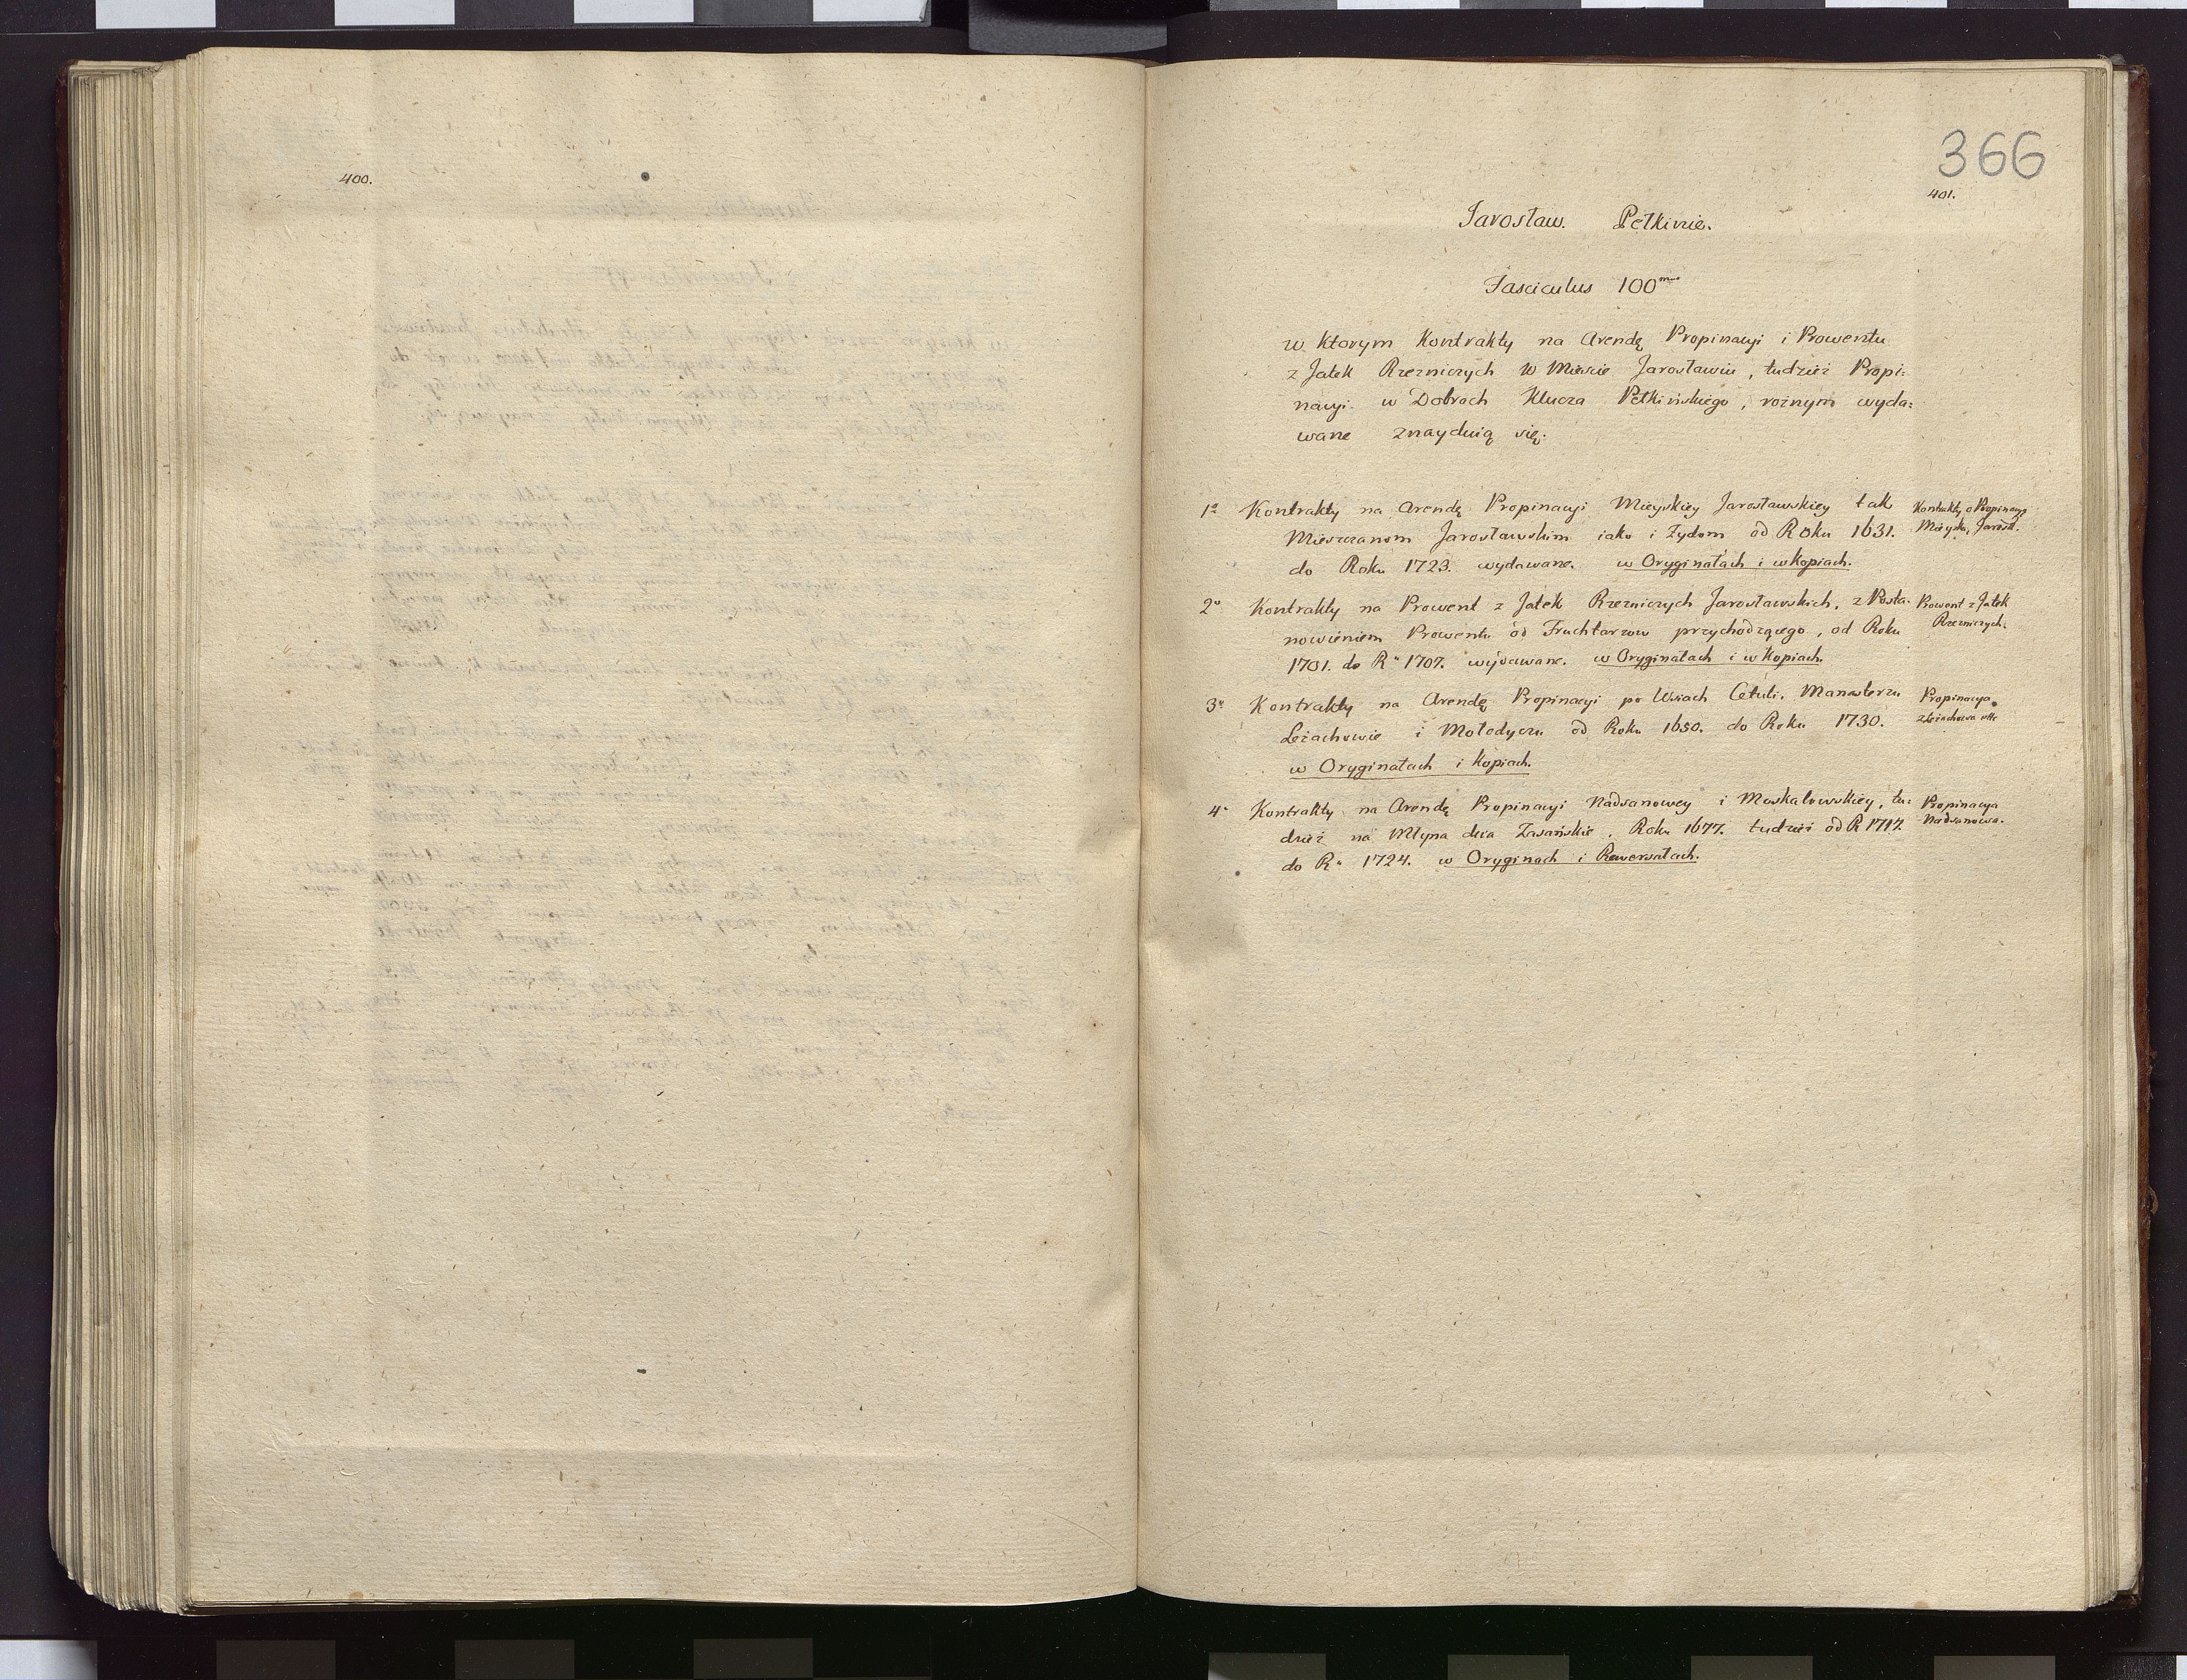 400.
366
401.
Jarosław. Pełkinie.
Fasciculus 100mus
w ktorym Kontrakty na Arendę Propinacyi i Prowentu
z Jatek Rzezniczych w Miescie Jarosławiu, tudzież Propi:
nacyi w Dobrach Klucza Pełkińskiego, rożnym wyda:
wane znayduią się.
1o Kontrakty na Arendę Propinacyi Mieyskiey Jarosławskiey tak
Mieszczanom Jarosławskim iako i Żydom od Roku 1631.
do Roku 1723. wydawane. w Oryginałach i w Kopiach.
Kontrakty o Propinacyą
Mieyską Jarosł.
2o Kontrakty na Prowent z Jatek Rzezniczych Jarosławskich, z Posta:
nowieniem Prowentu od Fruchtarzow przychodzącego, od Roku
1701. do Ru 1707. wydawane. w Oryginałach i w Kopiach.
Prowent z Jatek
Rzezniczych.
3o Kontrakty na Arendę Propinacyi po Wsiach Cetuli, Manasterzu
Leżachowie i Mołodyczu od Roku 1650. do Roku 1730.
w Oryginałach i Kopiach.
Propinacya
z Leżachowa
4o Kontrakty na Arendę Propinacyi Nadsanowey i Moskalowskiey, tu:
dzież na Młyna dwa Zasańskie, Roku 1677. tudzież od R 1717.
do Ru 1724. w Oryginach i Rewersałach.
Propinacya
Nadsanowa.